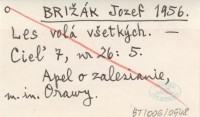 BRIŽÁK Jozef 1956.
Les volá všetkých. —
Cieľ 7, nr 26: 5.
Apel o zalesianie,
m. in. Orawy.